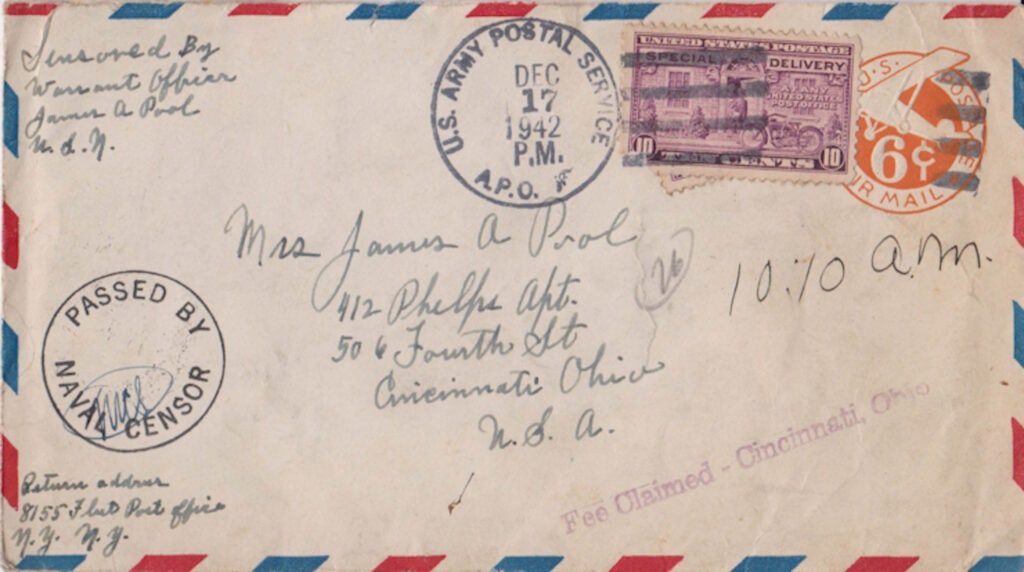 Sensored By
Warrant Officer
James A Pool
U.S.N.
U.S. ARMY POSTAL SERVICE
DEC
17
1942
P.M.
A.P.O.
UNITED STATES POSTAGE
SPECIAL DELIVERY
AT ANY
UNITED STATES
POST OFFICE
10 TEN CENTS 10
U.S. POSTAGE
6¢
AIR MAIL
Mrs James A Pool
412 Phelps Apt.
506 Fourth St
Cincinnati Ohio
U. S. A.
26
10:10 a.m.
PASSED BY
NAVAL CENSOR
Fee Claimed - Cincinnati, Ohio
Return address
8155 Fleet Post office
N.Y. N.Y.